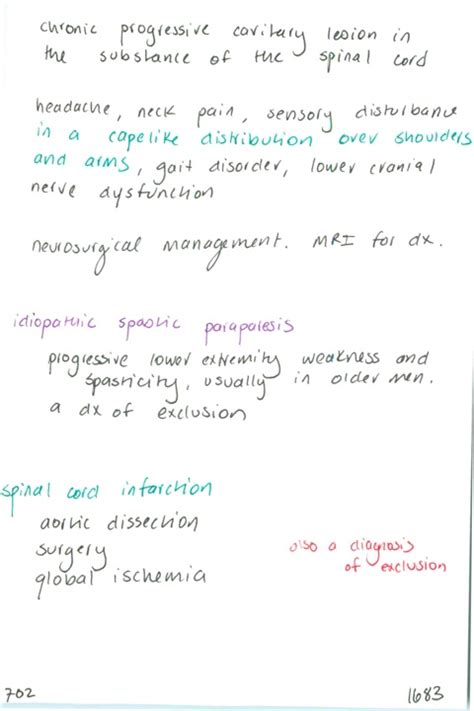 chronic progressive cavitary lesion in
the substance of the spinal cord
headache, neck pain, sensory disturbance
in a capelike distribution over shoulders
and arms, gait disorder, lower cranial
nerve dysfunction
neurosurgical management. MRI for dx.
idiopathic spastic parapalesis
progressive lower extremity weakness and
spasticity, usually in older men.
a dx of exclusion
spinal cord infarction
aortic dissection
surgery
global ischemia
also a diagnosis
of exclusion
702
1683